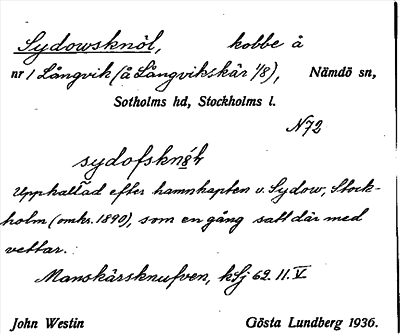 Sydowsknöl, kobbe å
nr 1 Långvik (å Långvikskär 1/8), Nämdö sn,
Sotholms hd, Stockholms l.
N72
sydofsknöl
Upphallad efter hamnkapten v. Sydow, Stock-
holm (omkr. 1890), som en gång satt där med
vettar.
Manskärsknufven, kSj 62. 11. V.
John Westin Gösta Lundberg 1936.